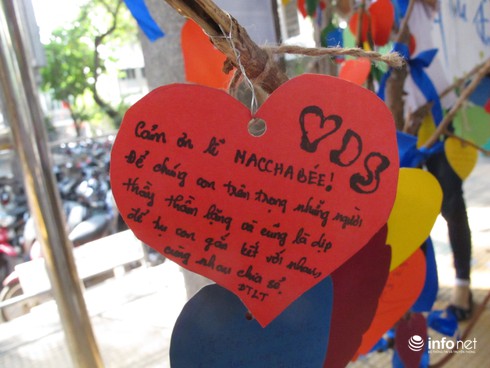 ♡DS
Cảm ơn lễ MACCHABÉE!
Để chúng con trân trọng những người
thầy thầm lặng và cũng là dịp
để tụi con gắn kết với nhau,
cùng nhau chia sẻ.
STLT
infonet